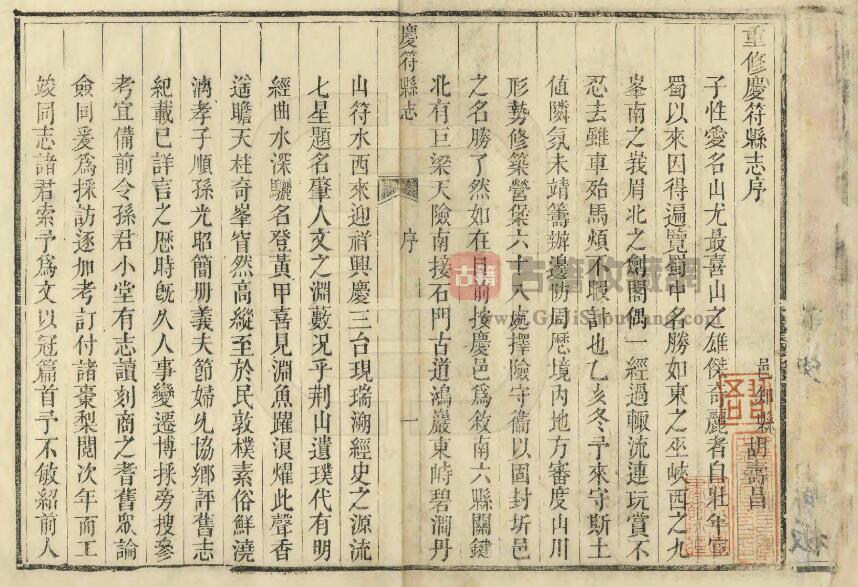 重修慶符縣志序
邑知縣胡壽昌
予性愛名山尤最喜山之雄傑奇麗者自壯年宦
蜀以來因得遍覽蜀中名勝如東之巫峽西之九
峯南之峩眉北之劍閣偶一經過輙流連玩賞不
忍去雖車殆馬煩不暇計也乙亥冬予來守斯土
值隣氛未靖籌辦邊防周歷境內地方審度山川
形勢修築營堡六十八處擇險守衛以固封圻邑
之名勝了然如在目前按慶邑爲敘南六縣關鍵
北有巨梁天險南接石門古道鴻巖東峙碧澗丹
慶符縣志
序
一
山符水西來迎祥興慶三台現瑞溯經史之源流
七星題名肇人文之淵藪况乎荆山遺璞代有明
經曲水深驪名登黃甲喜見淵魚躍浪燿此聲香
遥瞻天柱奇峯窅然高縱至於民敦樸素俗鮮澆
漓孝子順孫光昭簡册義夫節婦允協鄉評舊志
紀載已詳言之歷時旣久人事變遷博採旁搜參
考宜備前令孫君小堂有志讀刻商之耆舊眾論
僉同爰爲採訪逐加考訂付諸棗梨閱次年而工
竣同志諸君索予爲文以冠篇首予不敏紹前人
古籍收藏網
www.GujiShoucang.com